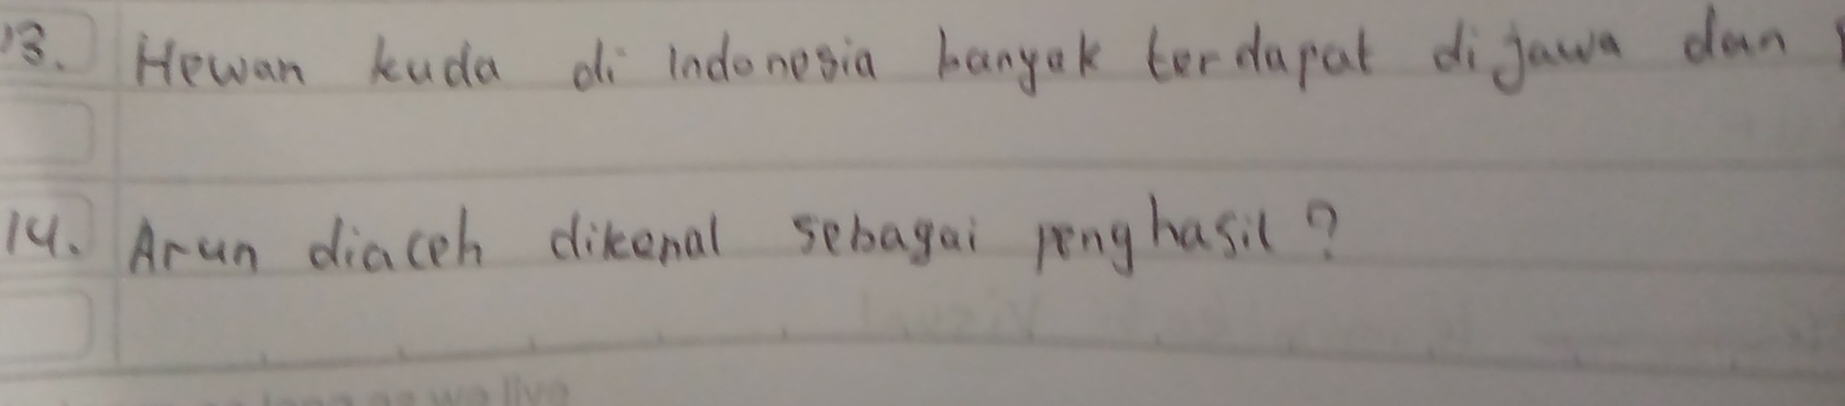 13. Hewan kuda di indonesia banyak terdapat di jawa dan
14. Arun diaceh dikenal sebagai penghasil?
we live